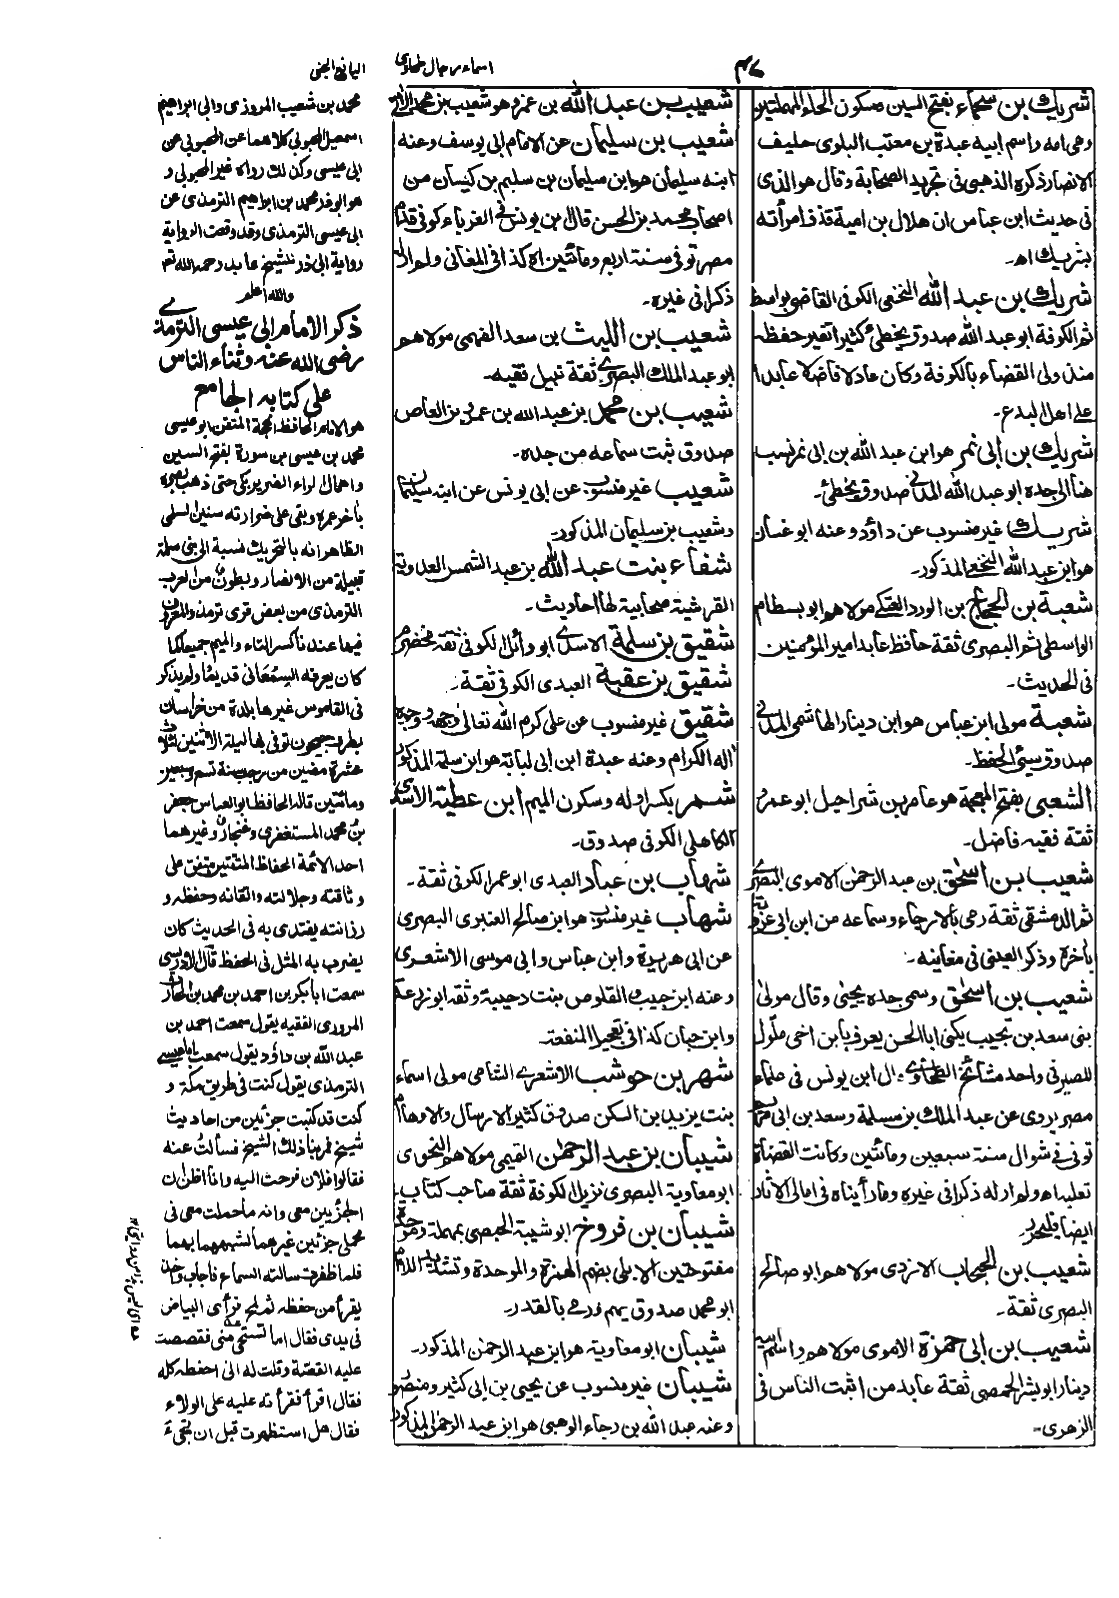 اسماء رجال طحاوی
اليانع الجنی
شريك بن سحماء بفتح السين وسكون الحاء المهملتين
وهی امه واسم ابيه عبدة بن معتب البلوی حليف
الانصار ذكره الذهبی فی تجريد الصحابة وقال هو الذی
فی حديث ابن عباس ان هلال بن امية قذف امرأته
بشريك اه۔
شريك بن عبد الله النخعی الكوفی القاضی بواسط
ثم الكوفة ابو عبد الله صدوق يخطئ كثيرا تغير حفظه
منذ ولی القضاء بالكوفة وكان عادلا فاضلا عابدا
علے اهل البدع۔
شريك بن ابی نمر هو ابن عبد الله بن ابی نمر نسب
هنا الی جده ابو عبد الله المدنی صدوق يخطئ۔
شريك غير منسوب عن داؤد وعنه ابو غسان
هو ابن عبد الله النخعی المذكور۔
شعبة بن الحجاج بن الورد العتكے مولاهم ابو بسطام
الواسطی ثم البصری ثقة حافظ عابد امير المؤمنين
فی الحديث۔
شعبة مولی ابن عباس هو ابن دينار الهاشمی المدنی
صدوق سيئ الحفظ۔
الشعبی بفتح المعجمة هو عامر بن شراحيل ابو عمرو
ثقة فقيه فاضل۔
شعيب بن اسحق بن عبد الرحمن الاموی البصرے
ثم الدمشقی ثقة رمی بالارجاء وسماعه من ابن ابی عروبة
بأخرة وذكر العينی فی مغانيه۔
شعيب بن اسحق وسمی جده يحيی وقال مولی
بنی سعد بن تجيب يكنی ابا الحسن يعرف بابن اخی ملول
للصيرفی واحد مشائخ الطحاوے قال ابن يونس فی علماء
مصر يروی عن عبد الملك بن مسلمة وسعد بن ابی مريم
توفی فی شوال سنة سبعين ومائتين وكانت القضاة
تقبله اه ولم ار له ذكرا فی غيره وقد رأيناه فی امالی الآثار
ايضا فليحرر۔
شعيب بن الحبحاب الازدی مولاهم ابو صالح
البصری ثقة۔
شعيب بن ابی حمزة الاموی مولاهم واسم ابيه
دينار ابو بشر الحمصی ثقة عابد من اثبت الناس فی
الزهری۔
شعيب بن عبد الله بن عمرو هو شعيب بن محمد الآتی
شعيب بن سليمان عن الامام ابی يوسف وعنه
ابنه سليمان هو ابن سليمان بن سليم بن كيسان من
اصحاب محمد بن الحسن قال بن يونس فی الغرباء كوفی قدم
مصر توفی سنة اربع ومائتين اه كذا فی المغانی ولم ار له
ذكرا فی غيره۔
شعيب بن الليث بن سعد الفهمی مولاهم
ابو عبد الملك البصرے ثقة نبيل فقيه۔
شعيب بن محمد بن عبد الله بن عمرو بن العاص
صدوق ثبت سماعه من جده۔
شعيب غير منسوب عن ابی يونس عن ابنه سليمان
وشعيب بن سليمان المذكور۔
شفاء بنت عبد الله بن عبد الشمس العدوية
القرشية صحابية لها احاديث۔
شقيق بن سلمة الاسدے ابو وائل الكوفی ثقة مخضرم
شقيق بن عقبة العبدی الكوفی ثقة۔
شقيق غير منسوب عن علی كرم الله تعالی وجهه ووجوه
آله الكرام وعنه عبدة ابن ابی لبابة هو ابن سلمة المذكور
شمر بكسر اوله وسكون الميم ابن عطية الاسدی
الكاهلی الكوفی صدوق۔
شهاب بن عباد العبدی ابو عمر الكوفی ثقة۔
شهاب غير منسوب هو ابن صالح العنبری البصری
عن ابی هريرة وابن عباس وابی موسی الاشعری
وعنه ابن حبيب القلوص بنت دحيبة وثقه ابو زرعة
وابن حبان كذا فی تعجيل المنفعة۔
شهر بن حوشب الاشعرے الشامی مولی اسماء
بنت يزيد بن السكن صدوق كثير الارسال والاوهام
شيبان بن عبد الرحمن التميمی مولاهم النحوی
ابو معاوية البصری نزيل الكوفة ثقة صاحب كتاب۔
شيبان بن فروخ ابو شيبة الحبطی بمهملة وموحدة
مفتوحتين الابلی بضم الهمزة والموحدة وتشديد اللام
ابو محمد صدوق يهم ورمے بالقدر۔
شيبان ابو معاوية هو ابن عبد الرحمن المذكور۔
شيبان غير منسوب عن يحيی بن ابی كثير ومنصور
وعنه عبد الله بن رجاء الوهبی هو ابن عبد الرحمن المذكور
محمد بن شعيب المروزی والی ابراهيم
اسمعيل المحبوبی كلاهما عن المحبوبی عن
ابی عيسی وكذلك رواه غير المحبوبی و
هو ابو ذر محمد بن ابراهيم الترمذی عن
ابی عيسی الترمذی وقد وقعت الرواية
رواية ابی ذر للشيخ عابد رحمه الله تعم
والله اعلم
ذكر الامام ابی عيسی الترمذی
رضی الله عنه وثناء الناس
علی كتابه الجامع
هو الامام الحافظ الحجة المتقن ابو عيسی
محمد بن عيسی بن سورة بفتح السين
واهمال الراء الضرير بكی حتی ذهب بصره
بأخر عمره وبقی علی ضرارته سنين السلمی
الظاهر انه بالتحريك نسبة الی بنی سلمة
قبيلة من الانصار وبطون من العرب
الترمذی من بعض قری ترمذ والمعروف
فيها عندنا كسر التاء والميم جميعا كما
كان يعرفه السمعانی قديما ولم يذكر
فی القاموس غيرها بلدة من خراسان
بطرف جيحون توفی بها ليلة الاثنين لثلاث
عشرة مضين من رجب سنة تسع وسبعين
ومائتين قاله الحافظ ابو العباس جعفر
بن محمد المستغفری وغنجار وغيرهما
احد الائمة الحفاظ المتقنين متفق علی
وثاقته وجلالته واتقانه وحفظه و
رزانته يقتدی به فی الحديث كان
يضرب به المثل فی الحفظ قال الادريسی
سمعت ابا بكر بن احمد بن محمد بن الحارث
المروزی الفقيه يقول سمعت احمد بن
عبد الله بن داؤد يقول سمعت ابا عيسے
الترمذی يقول كنت فی طريق مكة و
كنت قد كتبت جزئين من احاديث
شيخ فمر بنا ذلك الشيخ فسألت عنه
فقالوا فلان فرحت اليه وانا اظن ان
الجزئين معی وانه ما حملت معی فی
محملی جزئين غيرهما شبههما بهما
فلما ظفرت سالته السماع فاجاب واخذ
يقرأ من حفظه ثم لمح فرأی البياض
فی يدی فقال اما تستحی منی فقصصت
عليه القصة وقلت له انی احفظه كله
فقال اقرأ فقرأته عليه علی الولاء
فقال هل استظهرت قبل ان تجیء